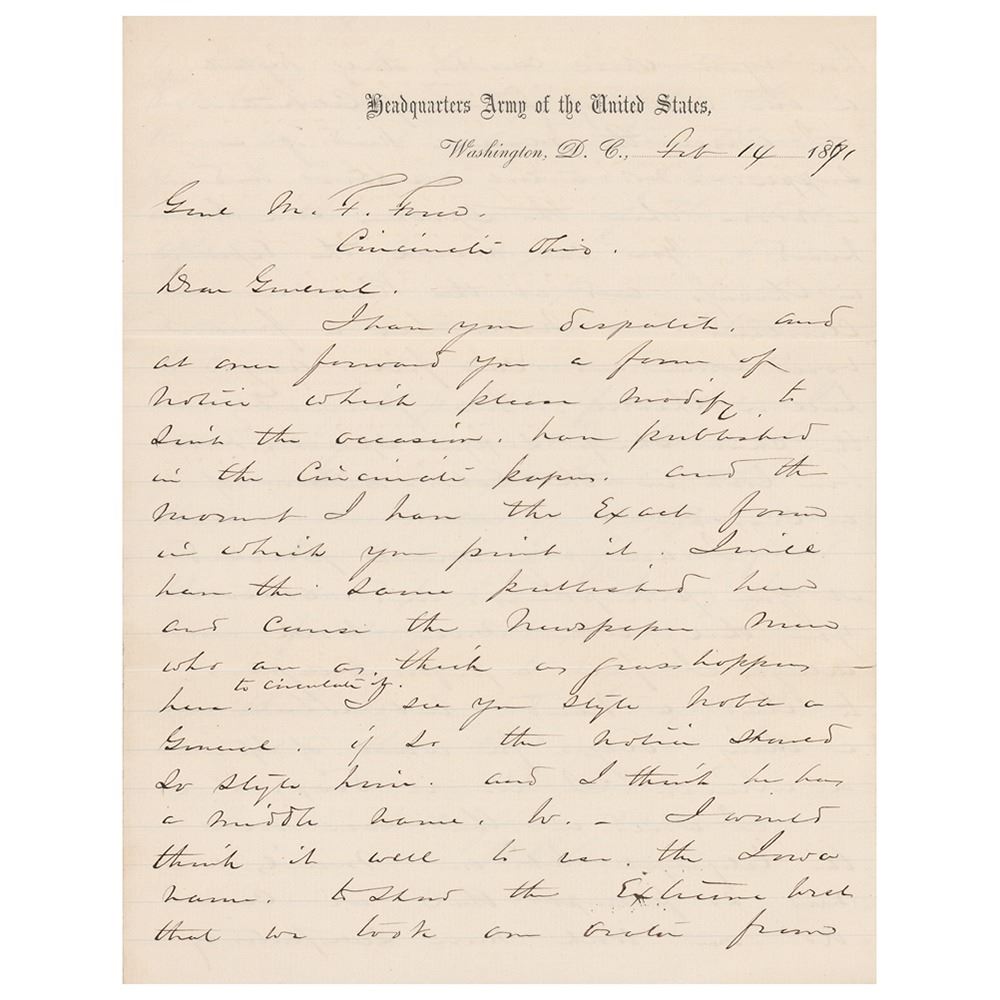 Headquarters Army of the United States,
Washington, D. C., Feb 14 1871
Genl M. F. Force.
Cincinnati Ohio.
Dear General.
I have your despatch, and
at once forward you a form of
Notice which please modify to
suit the occasion. have published
in the Cincinnati papers. and the
moment I have the Exact form
in which you print it. I will
have the same published here
and cause the Newspaper men
who are as thick as grasshoppers —
here to circulate it. I see you style Noble a
General. if so the notice should
so style him. and I think he has
a middle name. W. — I would
think it well to use, the Iowa
name. to show the Extreme West
that we took one orator from